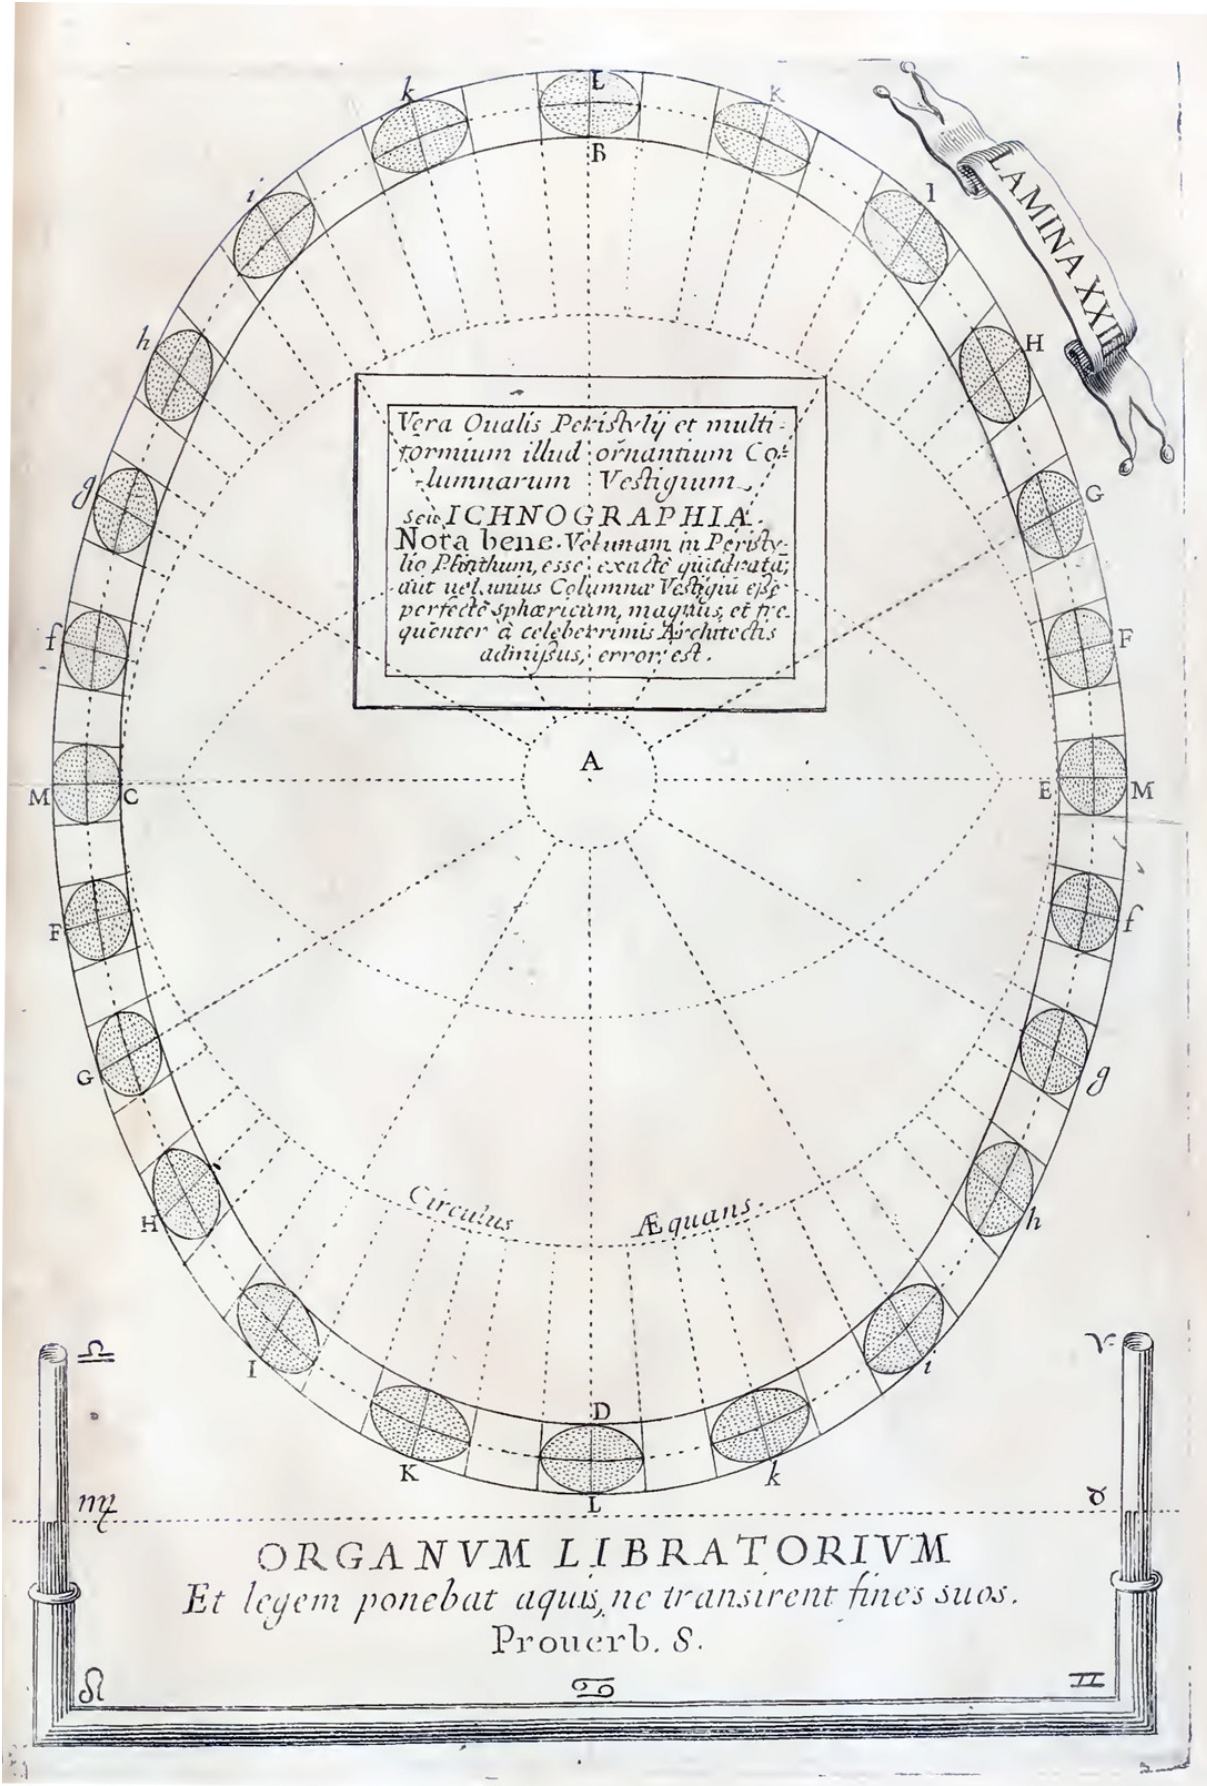 k
L
K
B
i
l
LAMINA XXII
h
H
g
G
Vera Oualis Peristylij et multi-
formium illud ornantium Co-
lumnarum Vestigium
seu ICHNOGRAPHIA.
Nota bene. Vel unam in Peristy-
lio Plinthum, esse exactè quadratā;
aut uel unius Columnæ Vestigiū eße
perfectè sphæricum, magnus, et fre-
quenter à celeberrimis Architectis
admißus, error est.
f
F
A
M
C
E
M
F
f
G
g
Circulus
Æquans
H
h
I
i
♎
♈
D
K
k
L
♍
♉
ORGANVM LIBRATORIVM
Et legem ponebat aquis, ne transirent fines suos.
Prouerb. 8.
♌
♋
♊